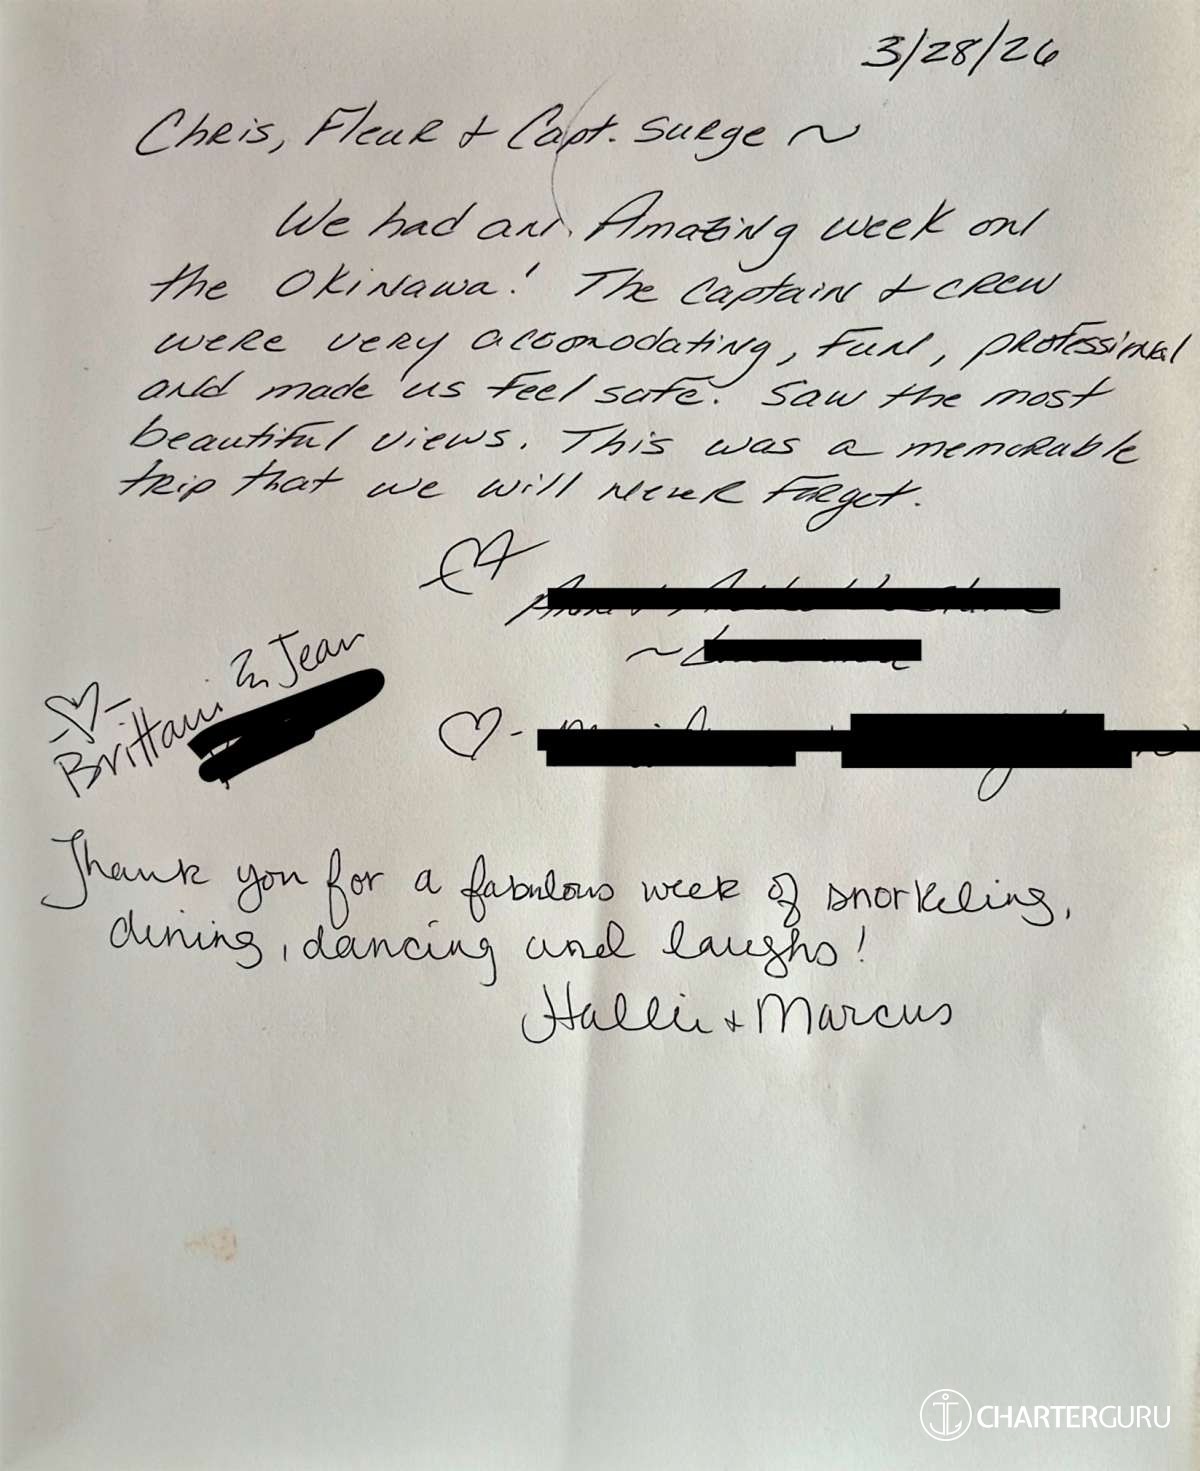 3/28/26
Chris, Fleur & Capt. Surge ~
We had an Amazing week on
the Okinawa! The Captain & crew
were very accomodating, fun, professional
and made us feel safe. Saw the most
beautiful views. This was a memorable
trip that we will never forget.
Brittani & Jean
Thank you for a fabulous week of snorkeling,
dining, dancing and laughs!
Hallie + Marcus
CHARTERGURU